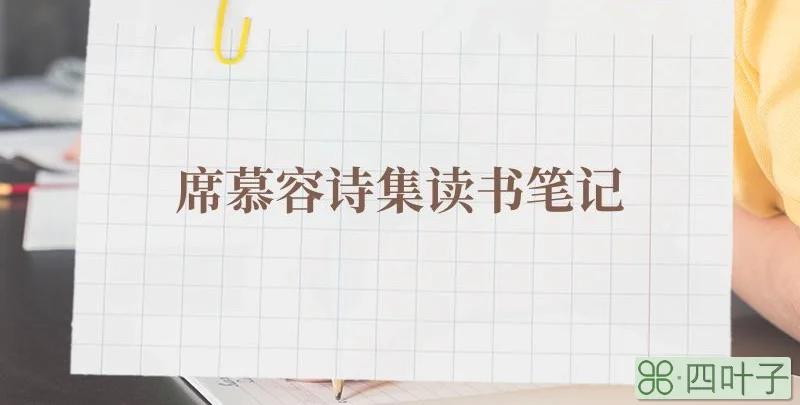 席慕容诗集读书笔记
四叶子